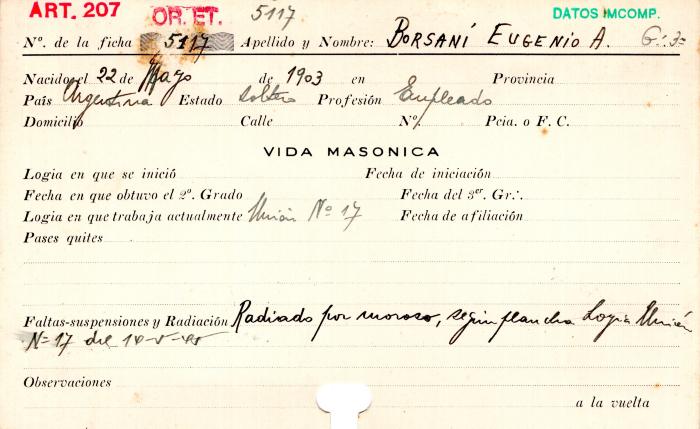 ART. 207 OR. ET. 5117 DATOS IMCOMP.
Nº. de la ficha 5117 Apellido y Nombre: BORSANÍ EUGENIO A. G∴ 3=
Nacido el 22 de Mayo de 1903 en Provincia
País Argentina Estado soltero Profesión Empleado
Domicilio Calle Nº. Pcia. o F. C.
VIDA MASONICA
Logia en que se inició Fecha de iniciación
Fecha en que obtuvo el 2º. Grado Fecha del 3er. Gr∴.
Logia en que trabaja actualmente Unión Nº 17 Fecha de afiliación
Pases quites
Faltas-suspensiones y Radiación Radiado por moroso, según plancha Logia Unión
Nº 17 del
Observaciones
a la vuelta